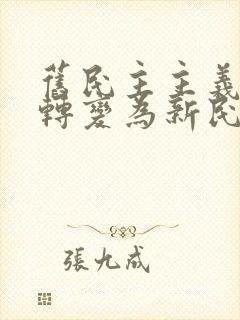 舊民主主義
轉變為新民
張九成